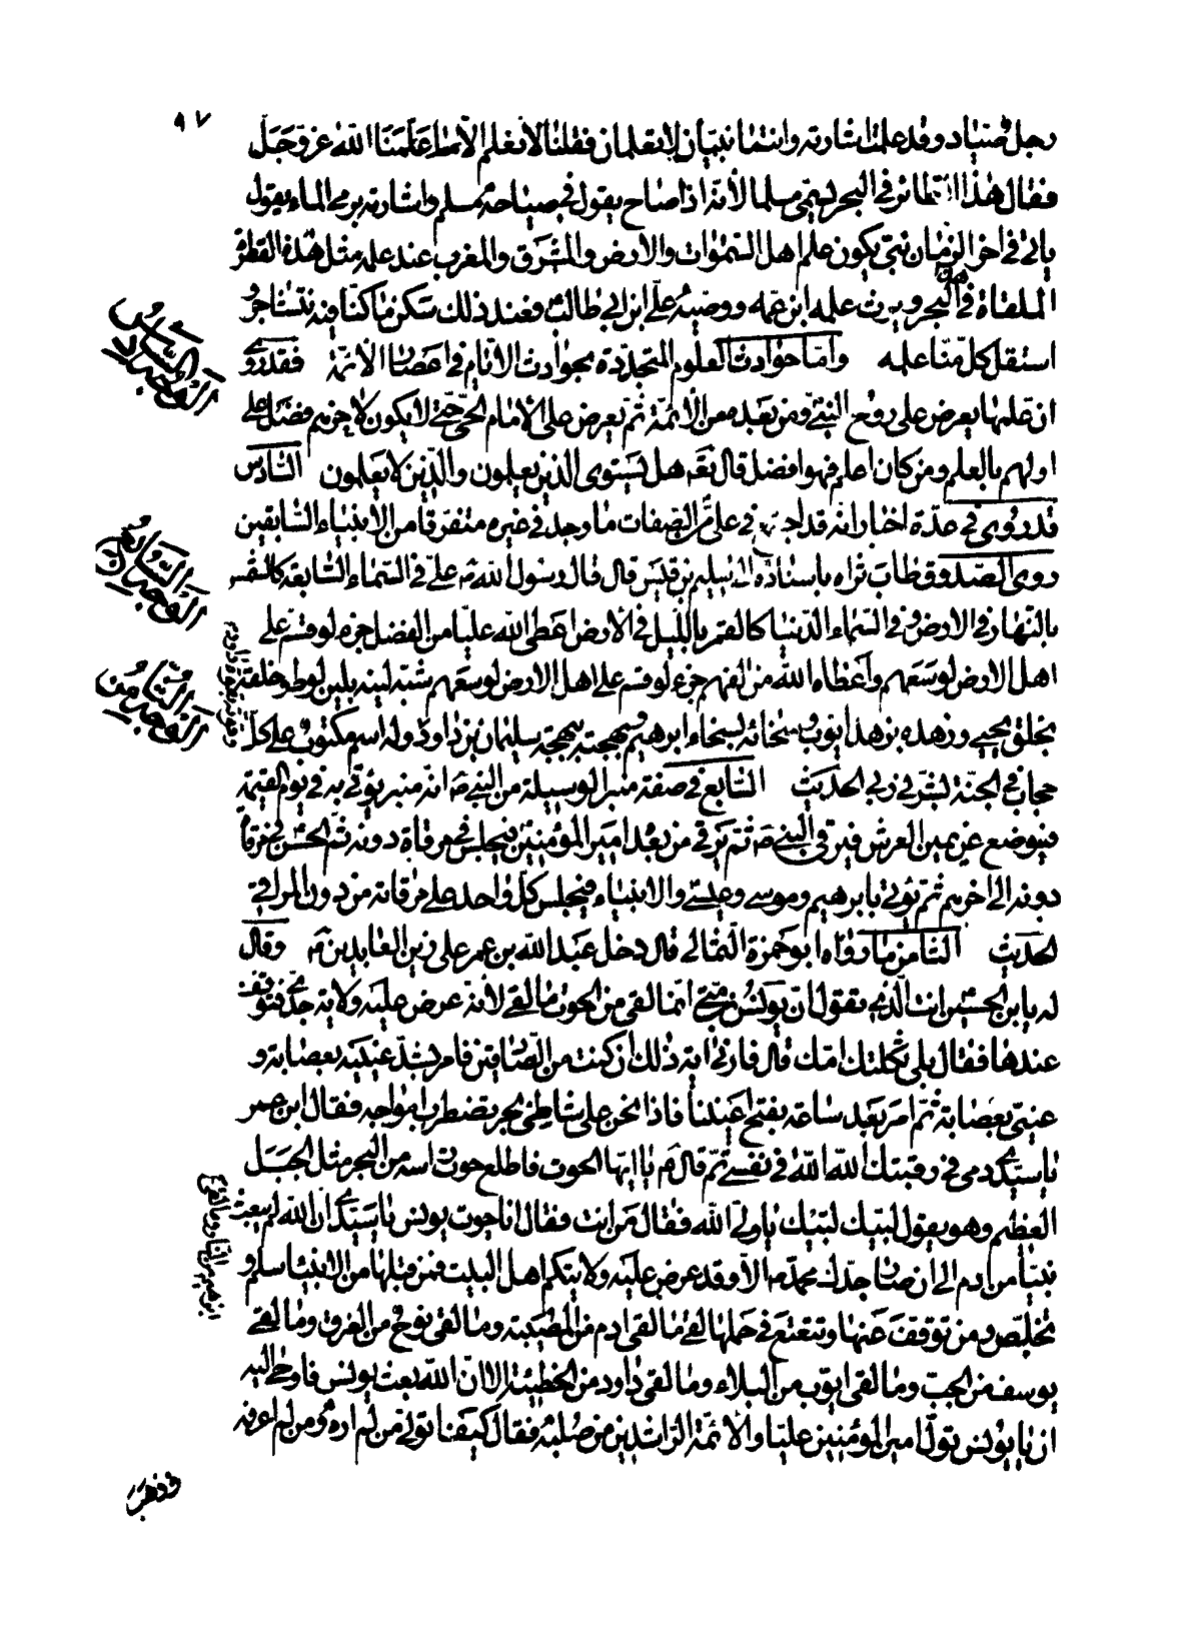 ٩٧
رجل صياد وقد علمت اشارته وانتما نبيان لا تعلمان فقلنا لا نعلم الا ما علمنا الله عز وجل
فقال هذا الطائر في البحر يسمى مسلما لأنه اذا صاح يقول في صياحه مسلم واشارته برمي الماء يقول
يأتي في اخر الزمان نبي يكون علم اهل السموات والارض والمشرق والمغرب عند علمه مثل هذه القطرة
الملقاة في البحر ويرث علمه ابن عمه ووصيه علي ابن ابي طالب فعند ذلك سكن ما كنا فيه نتشاجر
استقل كل منا علمه واما حوادث العلوم المتجددة بحوادث الايام في اعصار الأئمة فقد روي
ان علمها يعرض على روح النبي ومن بعده من الأئمة ثم يعرض على الامام الحي حتى لا يكون لاخرهم فضل على
اولهم بالعلم ومن كان اعلم فهو افضل قال تعه هل يستوى الذين يعلمون والذين لا يعلمون السادس
قد روي في عدة اخبار انه قد اجتمع في علي من الصفات ما وجد في غيره متفرقا من الانبياء السابقين
روى الصدوق طاب ثراه باسناده الى سليم بن قيس قال قال رسول الله ص علي في السماء السابعة كالشمس
بالنهار في الارض وفي السماء الدنيا كالقمر بالليل في الارض اعطى الله عليا من الفضل جزء لو قسم على
اهل الارض لوسعهم واعطاه الله من الفهم جزء لو قسم على اهل الارض لوسعهم شبه لينه بلين لوط وخلقه
بخلق يحيى وزهده بزهد ايوب وسخائه بسخاء ابرهيم وبهجته ببهجة سليمان بن داود وله اسم مكتوب على كل
حجاب في الجنة بشرني ربي الحديث السابع في صفة منبر الوسيلة من النبي ص انه منبر يؤتى به في يوم القيمة
فيوضع عن يمين العرش فيرقى النبي ص ثم يرقى من بعد امير المؤمنين فيجلس في مرقاة دونه ثم الحسن في مرقاة
دونه الى اخرهم ثم يؤتى بابرهيم وموسى وعيسى والانبياء فيجلس كل واحد على مرقاته من دون المراقي
الحديث الثامن ما رواه ابو حمزة الثمالي قال دخل عبد الله بن عمر على زين العابدين ع وقال
له يا بن الحسين انت الذي تقول ان يونس بن متى انما لقى من الحوت ما لقى لأنه عرض عليه ولاية جدي فتوقف
عندها فقال بلى ثكلتك امك قال فارني اية ذلك ان كنت من الصادقين فامر بشد عينيه بعصابة و
عيني بعصابة ثم امر بعد ساعة بفتح اعيننا فاذا نحن على شاطئ بحر يضطرب امواجه فقال ابن عمر
يا سيدي دمي في رقبتك الله الله في نفسي ثم قال ع يا ايها الحوت فاطلع حوت راسه من البحر مثل الجبل
العظيم وهو يقول لبيك لبيك يا ولي الله فقال من انت فقال انا حوت يونس يا سيدي ان الله لم يبعث
نبيا من ادم الى ان صار جدك محمد ص الا وقد عرض عليه ولايتكم اهل البيت فمن قبلها من الانبياء سلم و
تخلص ومن توقف عنها وتتعتع في حملها لقى ما لقى ادم من المصيبة وما لقى نوح من الغرق وما لقى
يوسف من الجب وما لقى ايوب من البلاء وما لقى داود من الخطيئة الا ان الله بعث يونس فاوحى اليه
ان يا يونس تول امير المؤمنين عليا والأئمة الراشدين من صلبه فقال كيف اتولى من لم اره ومن لم اعرفه
وذهب
السادس من الفضائل
السابع من الفضائل
الثامن من الفضائل